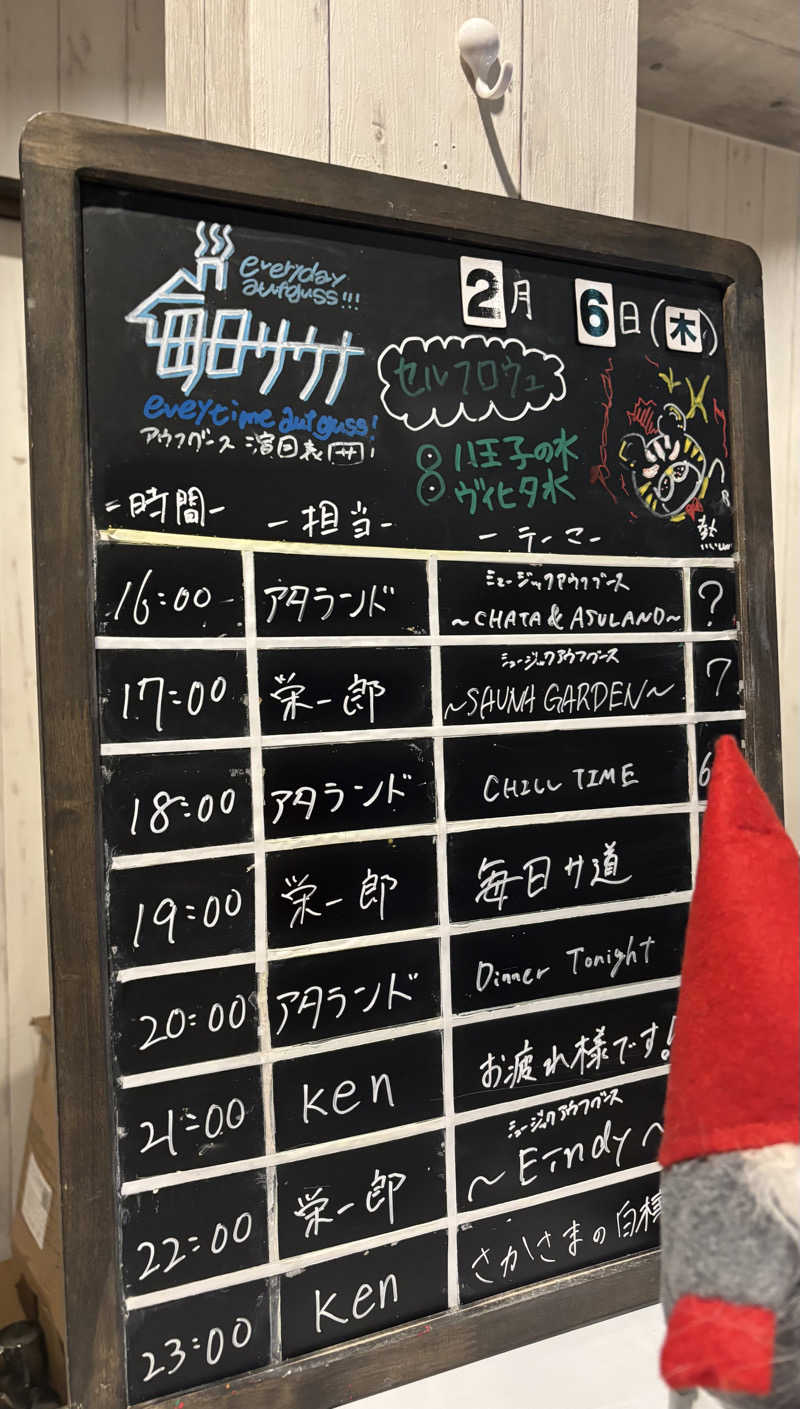 everyday
aufguss!!!
2月 6日(木)
毎日サウナ
everytime aufguss!
アウフグース 演目表
セルフロウリュ
8 八王子の水
ヴィヒタ水
-時間- -担当- -テーマ-
16:00 アタランド ミュージックアウフグース ?
~CHATA & ASULAND~
17:00 栄一郎 ミュージックアウフグース 7
~SAUNA GARDEN~
18:00 アタランド CHILL TIME 6
19:00 栄一郎 毎日サ道
20:00 アタランド Dinner Tonight
21:00 Ken お疲れ様です!
22:00 栄一郎 ミュージックアウフグース
~Eindy~
23:00 Ken さかさまの白樺